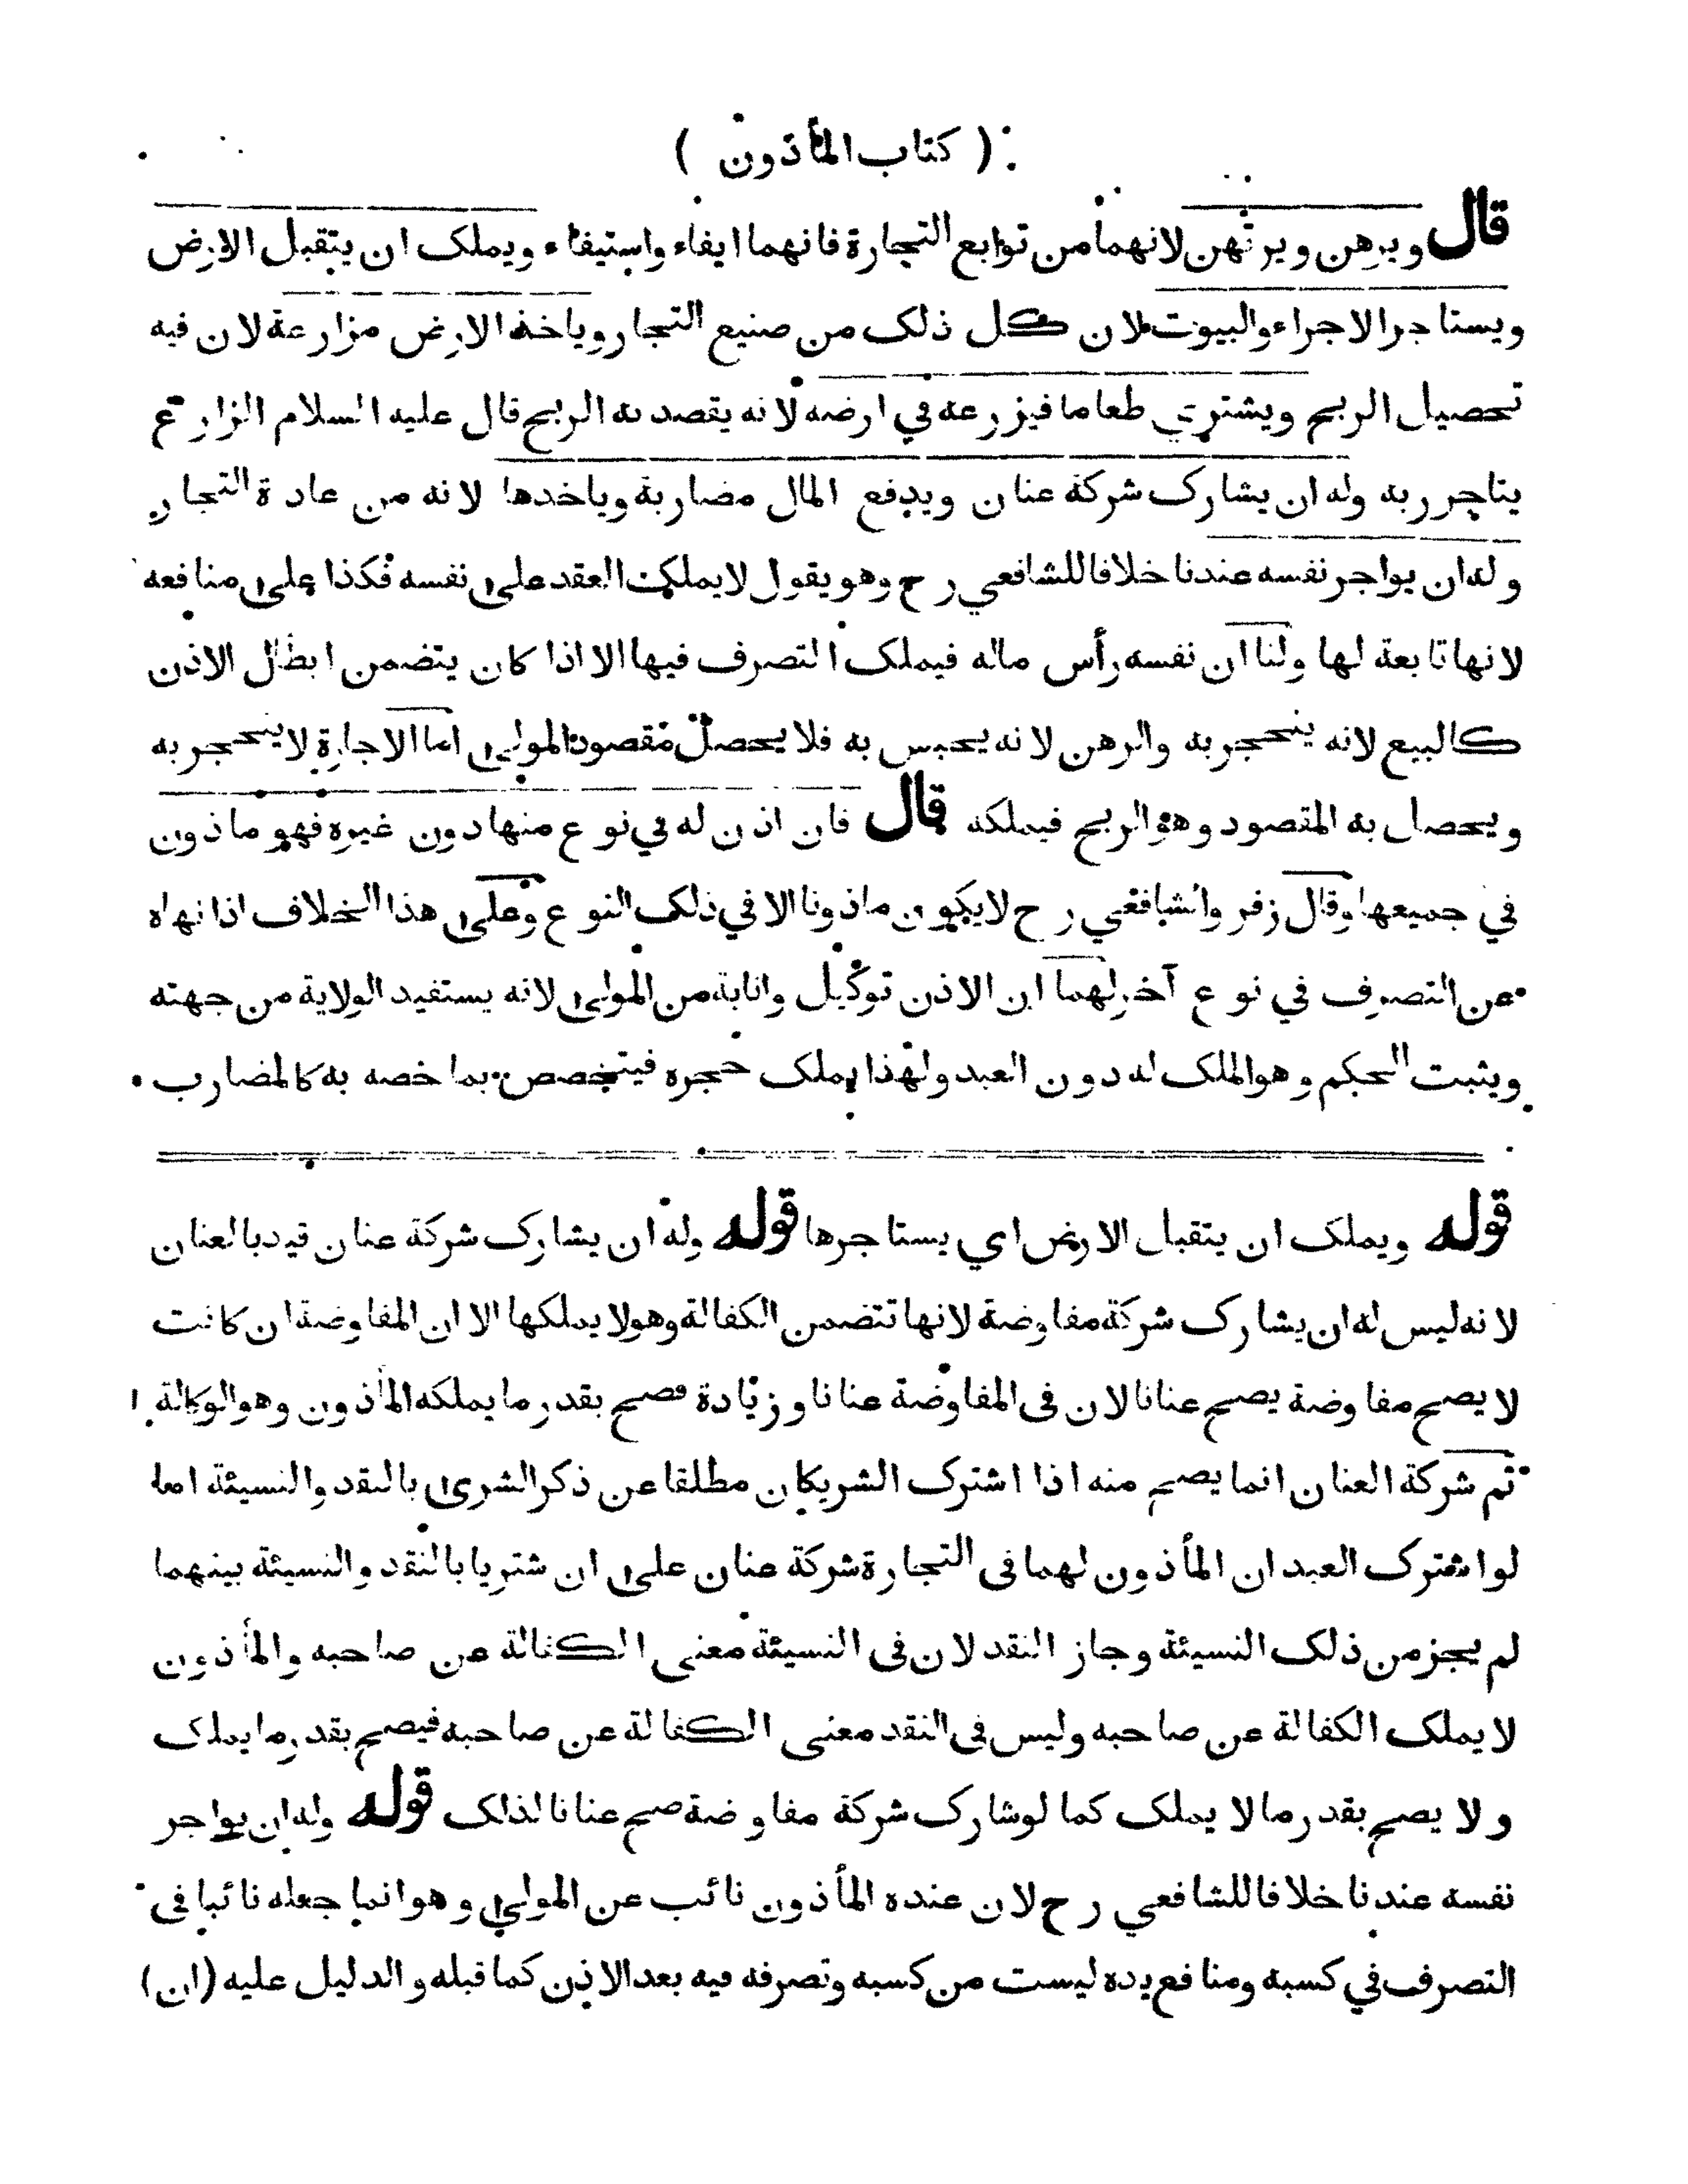 ( كتاب المأذون )
قال ويرهن ويرتهن لانهما من توابع التجارة فانهما ايفاء واستيفاء ويملك ان يتقبل الارض
ويستاجر الاجراء والبيوت لان كل ذلك من صنيع التجار وياخذ الارض مزارعة لان فيه
تحصيل الربح ويشتري طعاما فيزرعه في ارضه لانه يقصد به الربح قال عليه السلام الزارع
يتاجر ربه وله ان يشارك شركة عنان ويدفع المال مضاربة وياخذها لانه من عادة التجار
وله ان يواجر نفسه عندنا خلافا للشافعي رح وهو يقول لا يملك العقد على نفسه فكذا على منافعه
لانها تابعة لها ولنا ان نفسه رأس ماله فيملك التصرف فيها الا اذا كان يتضمن ابطال الاذن
كالبيع لانه ينحجر به والرهن لانه يحبس به فلا يحصل مقصود المولى اما الاجارة لا ينحجر به
ويحصل به المقصود وهو الربح فيملكه قال فان اذن له في نوع منها دون غيره فهو ماذون
في جميعها وقال زفر والشافعي رح لا يكون ماذونا الا في ذلك النوع وعلى هذا الخلاف اذا نهاه
عن التصرف في نوع آخر لهما ان الاذن توكيل وانابة من المولى لانه يستفيد الولاية من جهته
ويثبت الحكم وهو الملك له دون العبد ولهذا يملك حجره فيتخصص بما خصه به كالمضارب
قوله ويملك ان يتقبل الارض اي يستاجرها قوله وله ان يشارك شركة عنان قيد بالعنان
لانه ليس له ان يشارك شركة مفاوضة لانها تتضمن الكفالة وهو لا يملكها الا ان المفاوضة ان كانت
لا يصح مفاوضة يصح عنانا لان فى المفاوضة عنانا و زيادة فصح بقدر ما يملكه المأذون وهو الوكالة
ثم شركة العنان انما يصح منه اذا اشترك الشريكان مطلقا عن ذكر الشرى بالنقد والنسيئة اما
لو اشترك العبدان المأذون لهما فى التجارة شركة عنان على ان شتريا بالنقد والنسيئة بينهما
لم يجز من ذلك النسيئة وجاز النقد لان فى النسيئة معنى الكفالة عن صاحبه والمأذون
لا يملك الكفالة عن صاحبه وليس فى النقد معنى الكفالة عن صاحبه فيصح بقدر ما يملك
ولا يصح بقدر ما لا يملك كما لو شارك شركة مفاوضة صح عنانا لذلك قوله وله ان يواجر
نفسه عندنا خلافا للشافعي رح لان عنده المأذون نائب عن المولى وهو انما جعله نائبا فى
التصرف في كسبه ومنافع يده ليست من كسبه وتصرفه فيه بعد الاذن كما قبله والدليل عليه (ان)